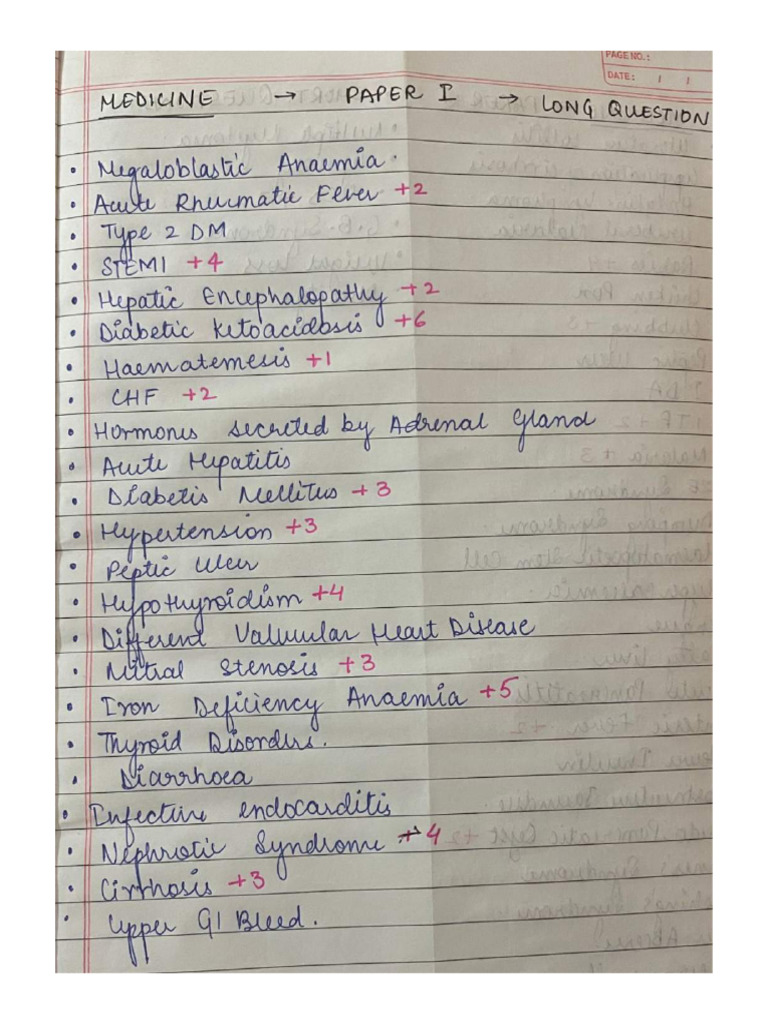 PAGE NO.:
DATE: / /
MEDICINE → PAPER I → LONG QUESTION
• Megaloblastic Anaemia.
• Acute Rheumatic Fever +2
• Type 2 DM
• STEMI +4
• Hepatic Encephalopathy +2
• Diabetic Ketoacidosis +6
• Haematemesis +1
• CHF +2
• Hormones secreted by Adrenal Gland
• Acute Hepatitis
• Diabetis Mellitus +3
• Hypertension +3
• Peptic Ulcer
• Hypothyroidism +4
• Different Valvular Heart Disease
• Mitral Stenosis +3
• Iron Deficiency Anaemia +5
• Thyroid Disorders.
• Diarrhoea
• Infective endocarditis
• Nephrotic Syndrome +4
• Cirrhosis +3
• Upper GI Bleed.